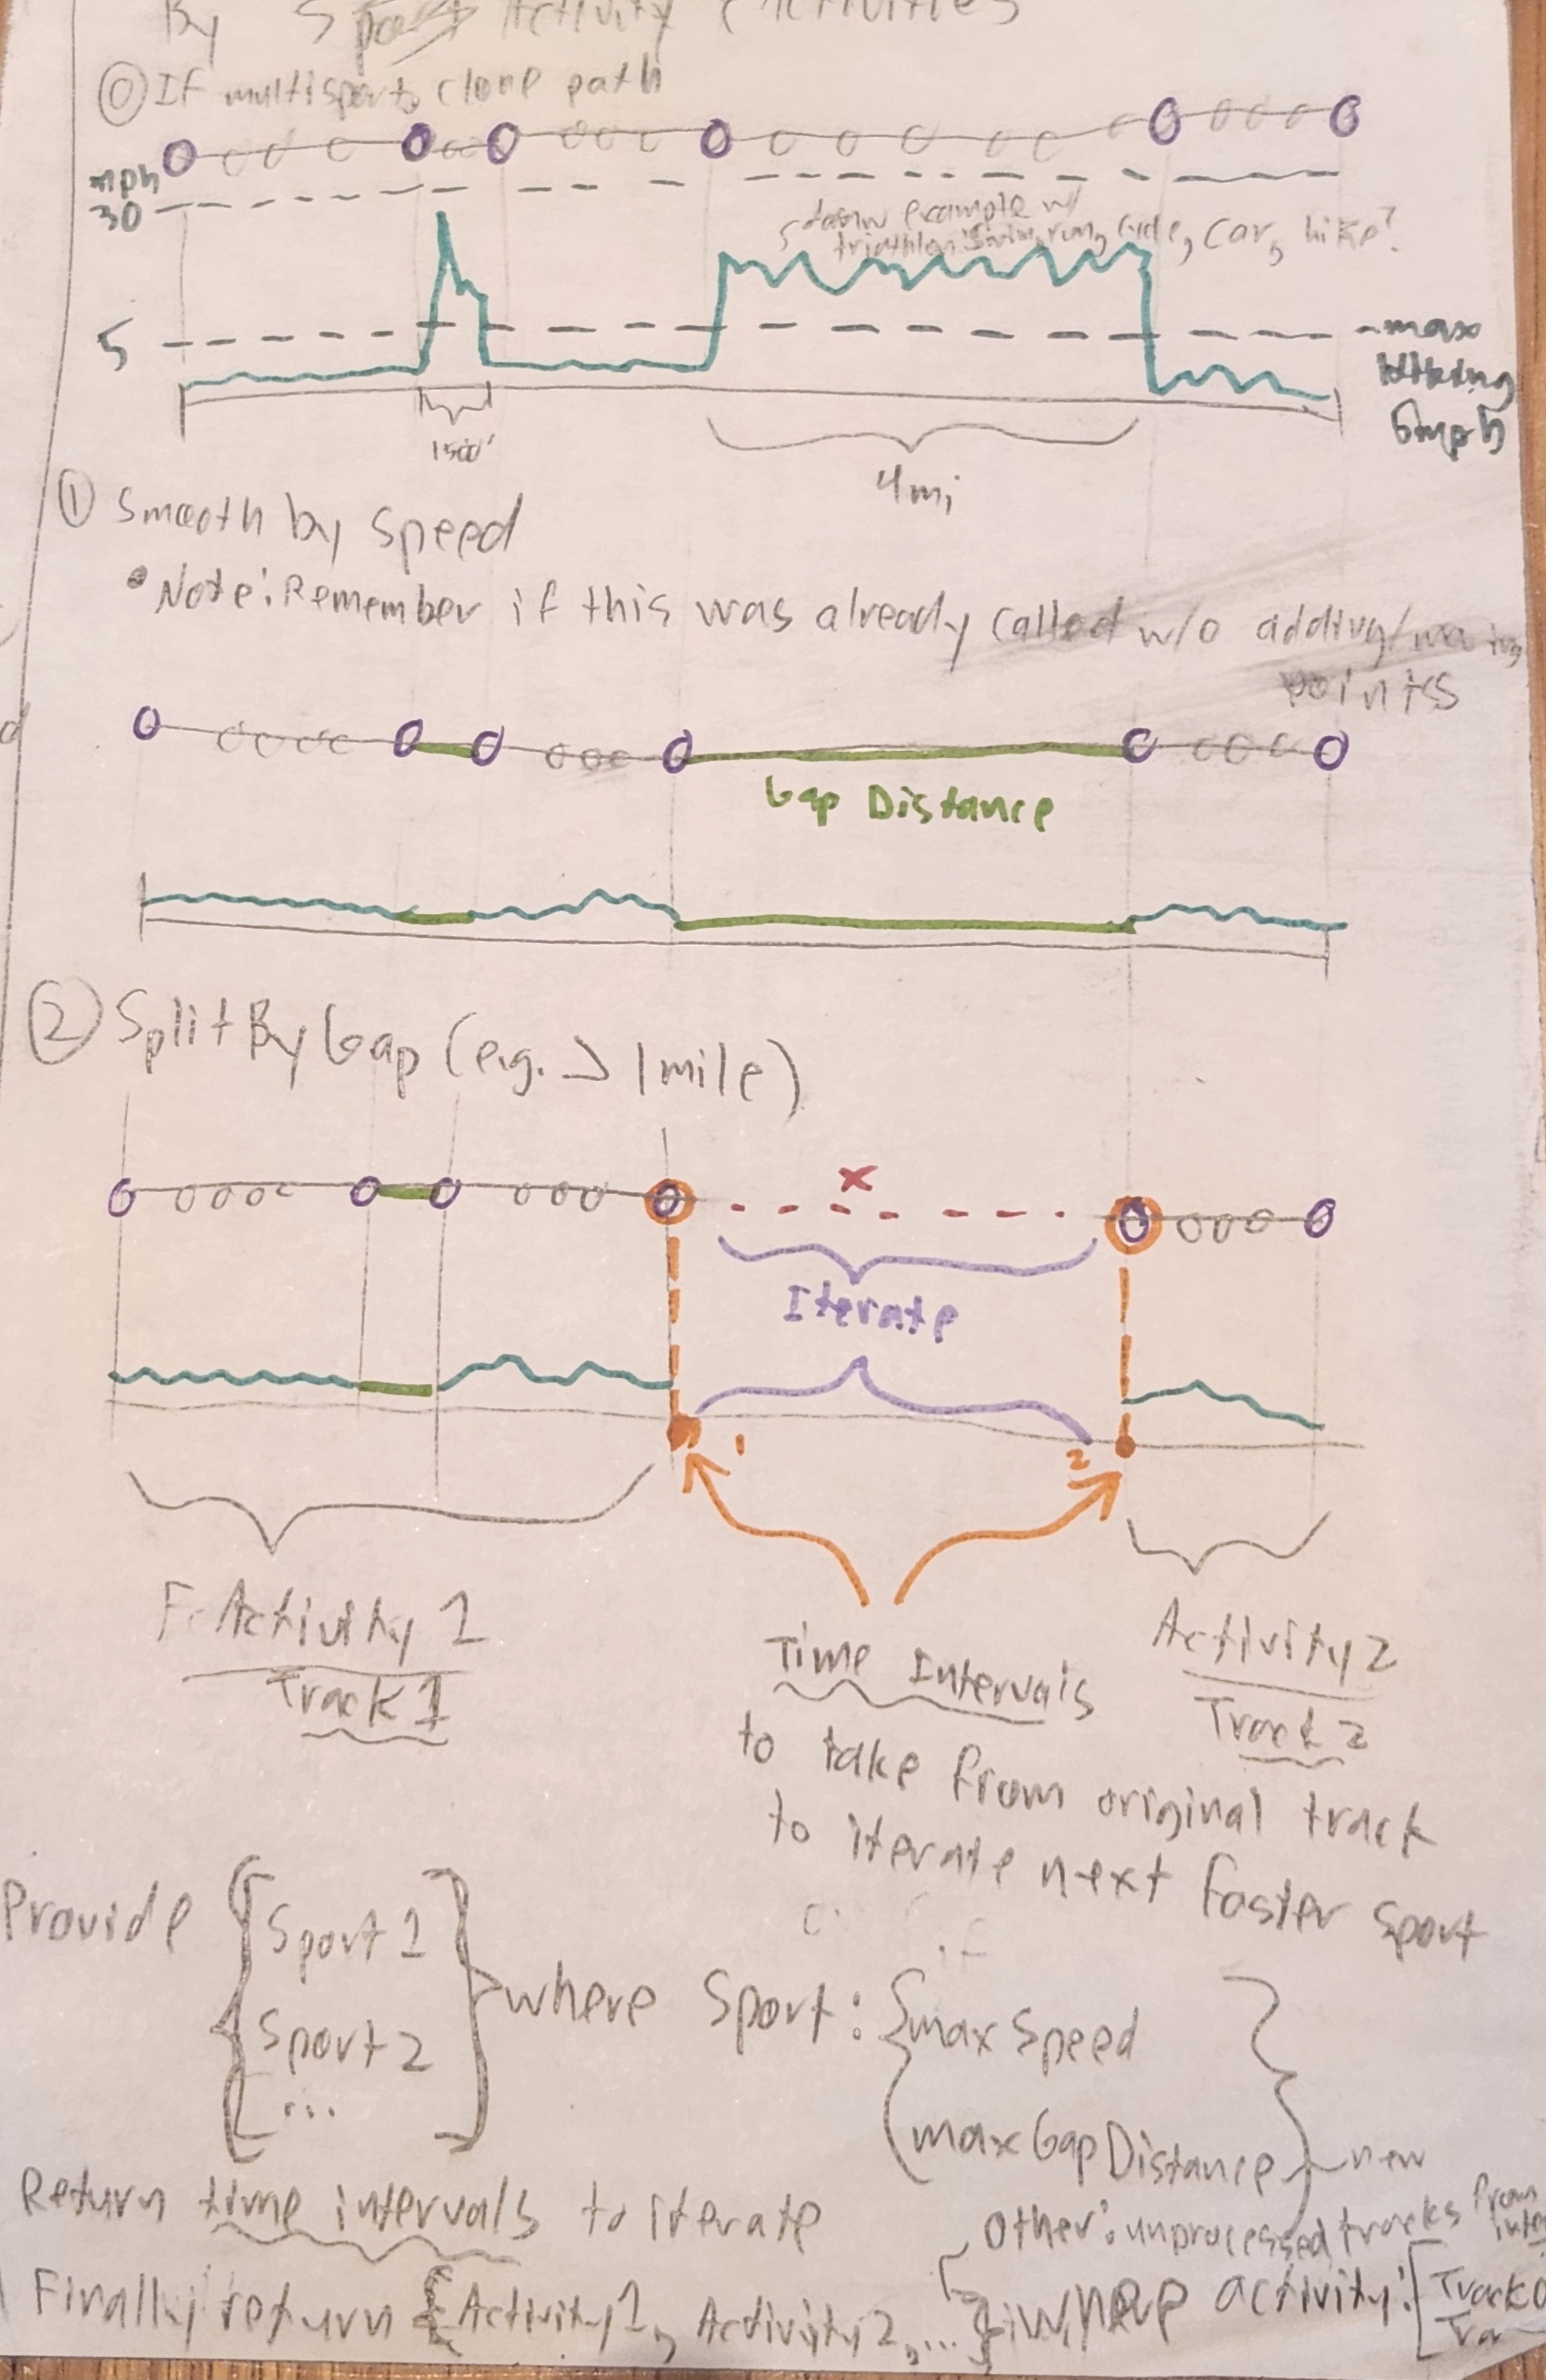 By Sport Activity
⓪ If multisport, clone path
mph
30
draw example w/
triathlon: Swim, run, cycle, car, hike?
5
max
5mph
1500'
4mi
① Smooth by speed
• Note: Remember if this was already called w/o adding/
points
Gap Distance
② Split By Gap (e.g. > 1 mile)
x
Iterate
1
2
Activity 1
Track 1
Time Intervals
to take from original track
to iterate next faster sport
Activity 2
Track 2
Provide
Sport 1
Sport 2
...
where Sport:
max Speed
max Gap Distance
new
Return time intervals to iterate
Other: unprocessed tracks from
Finally return {Activity 1, Activity 2, ...} where activity: [Track